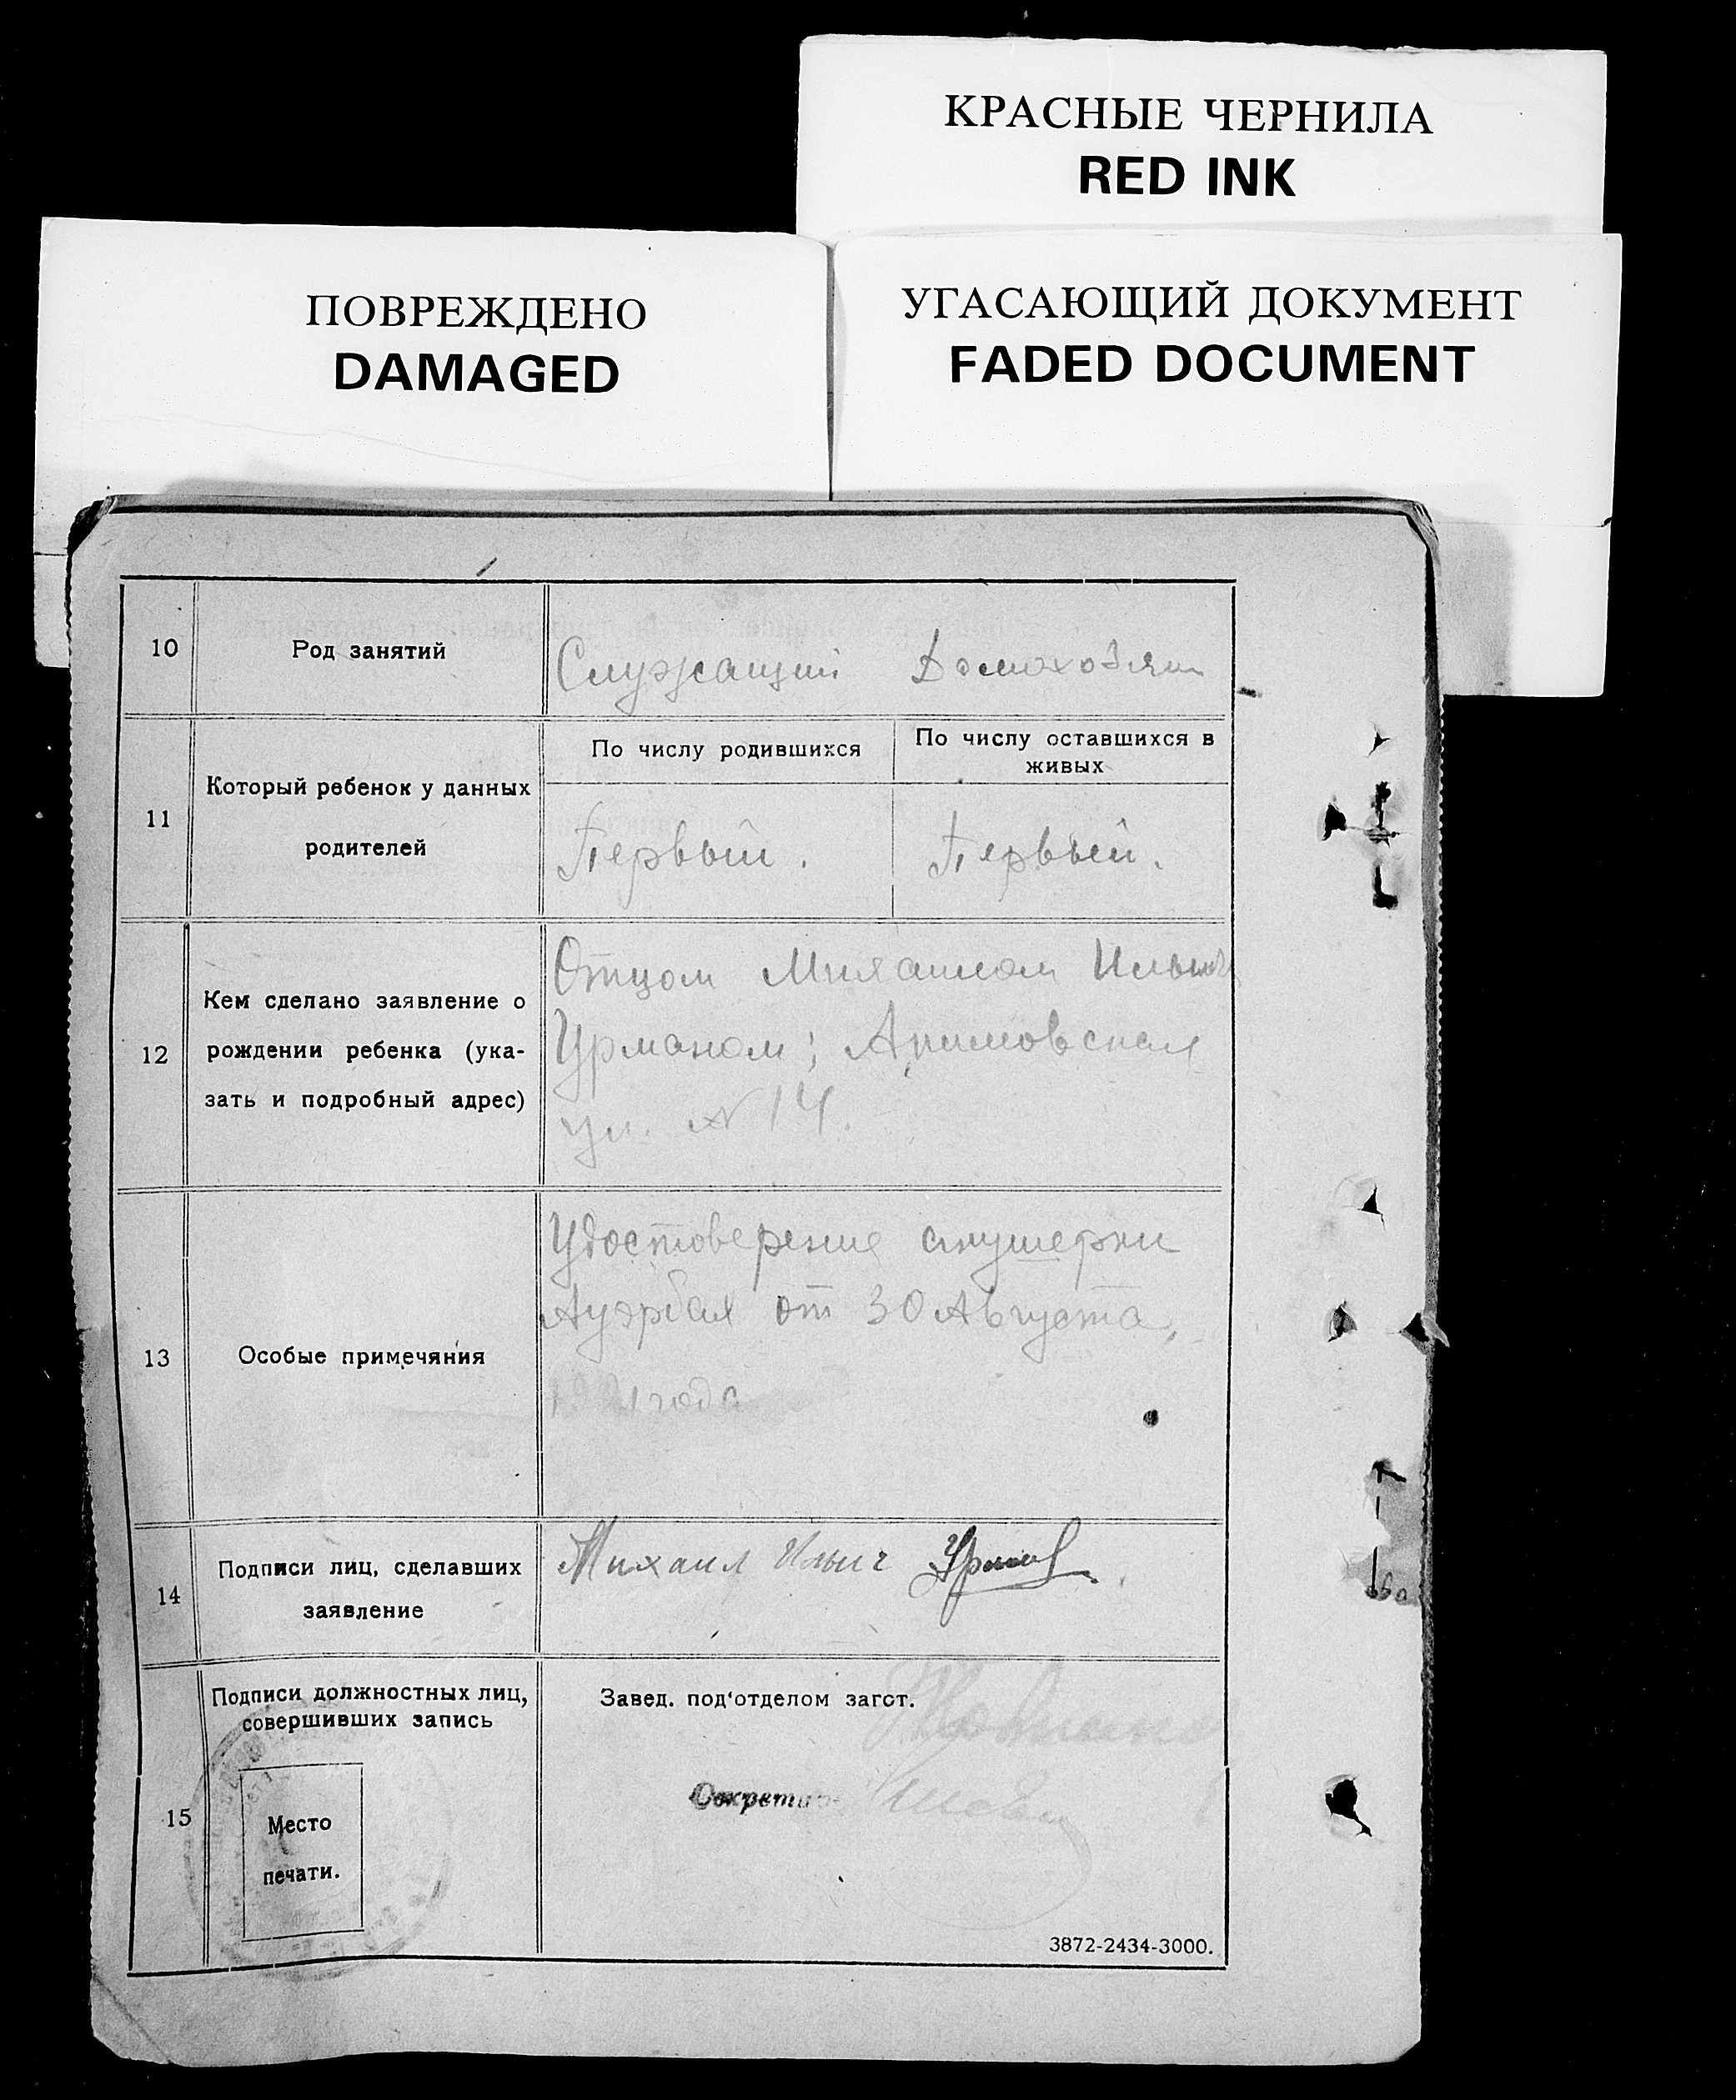 КРАСНЫЕ ЧЕРНИЛА
RED INK
ПОВРЕЖДЕНО
DAMAGED
УГАСАЮЩИЙ ДОКУМЕНТ
FADED DOCUMENT
10 Род занятий Служащий Домохозяин
11 Который ребенок у данных родителей
По числу родившихся
По числу оставшихся в
живых
Первый.
Первый.
12
Кем сделано заявление о
рождении ребенка (ука-
зать и подробный адрес)
Отцом Михаилом Ильич
Урманом;
ул. № 14.
13 Особые примечяния
Удостоверение акушерки
Ауэрбах от 30 Августа,
года
14
Подписи лиц, сделавших
заявление
Михаил Ильич Урман
15
Подписи должностных лиц,
совершивших запись
Место
печати.
Завед. под'отделом загст.
Секретарь
3872-2434-3000.